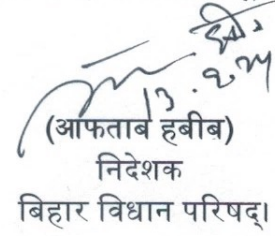 13.2.24
(आफताब हबीब)
निदेशक
बिहार विधान परिषद्।